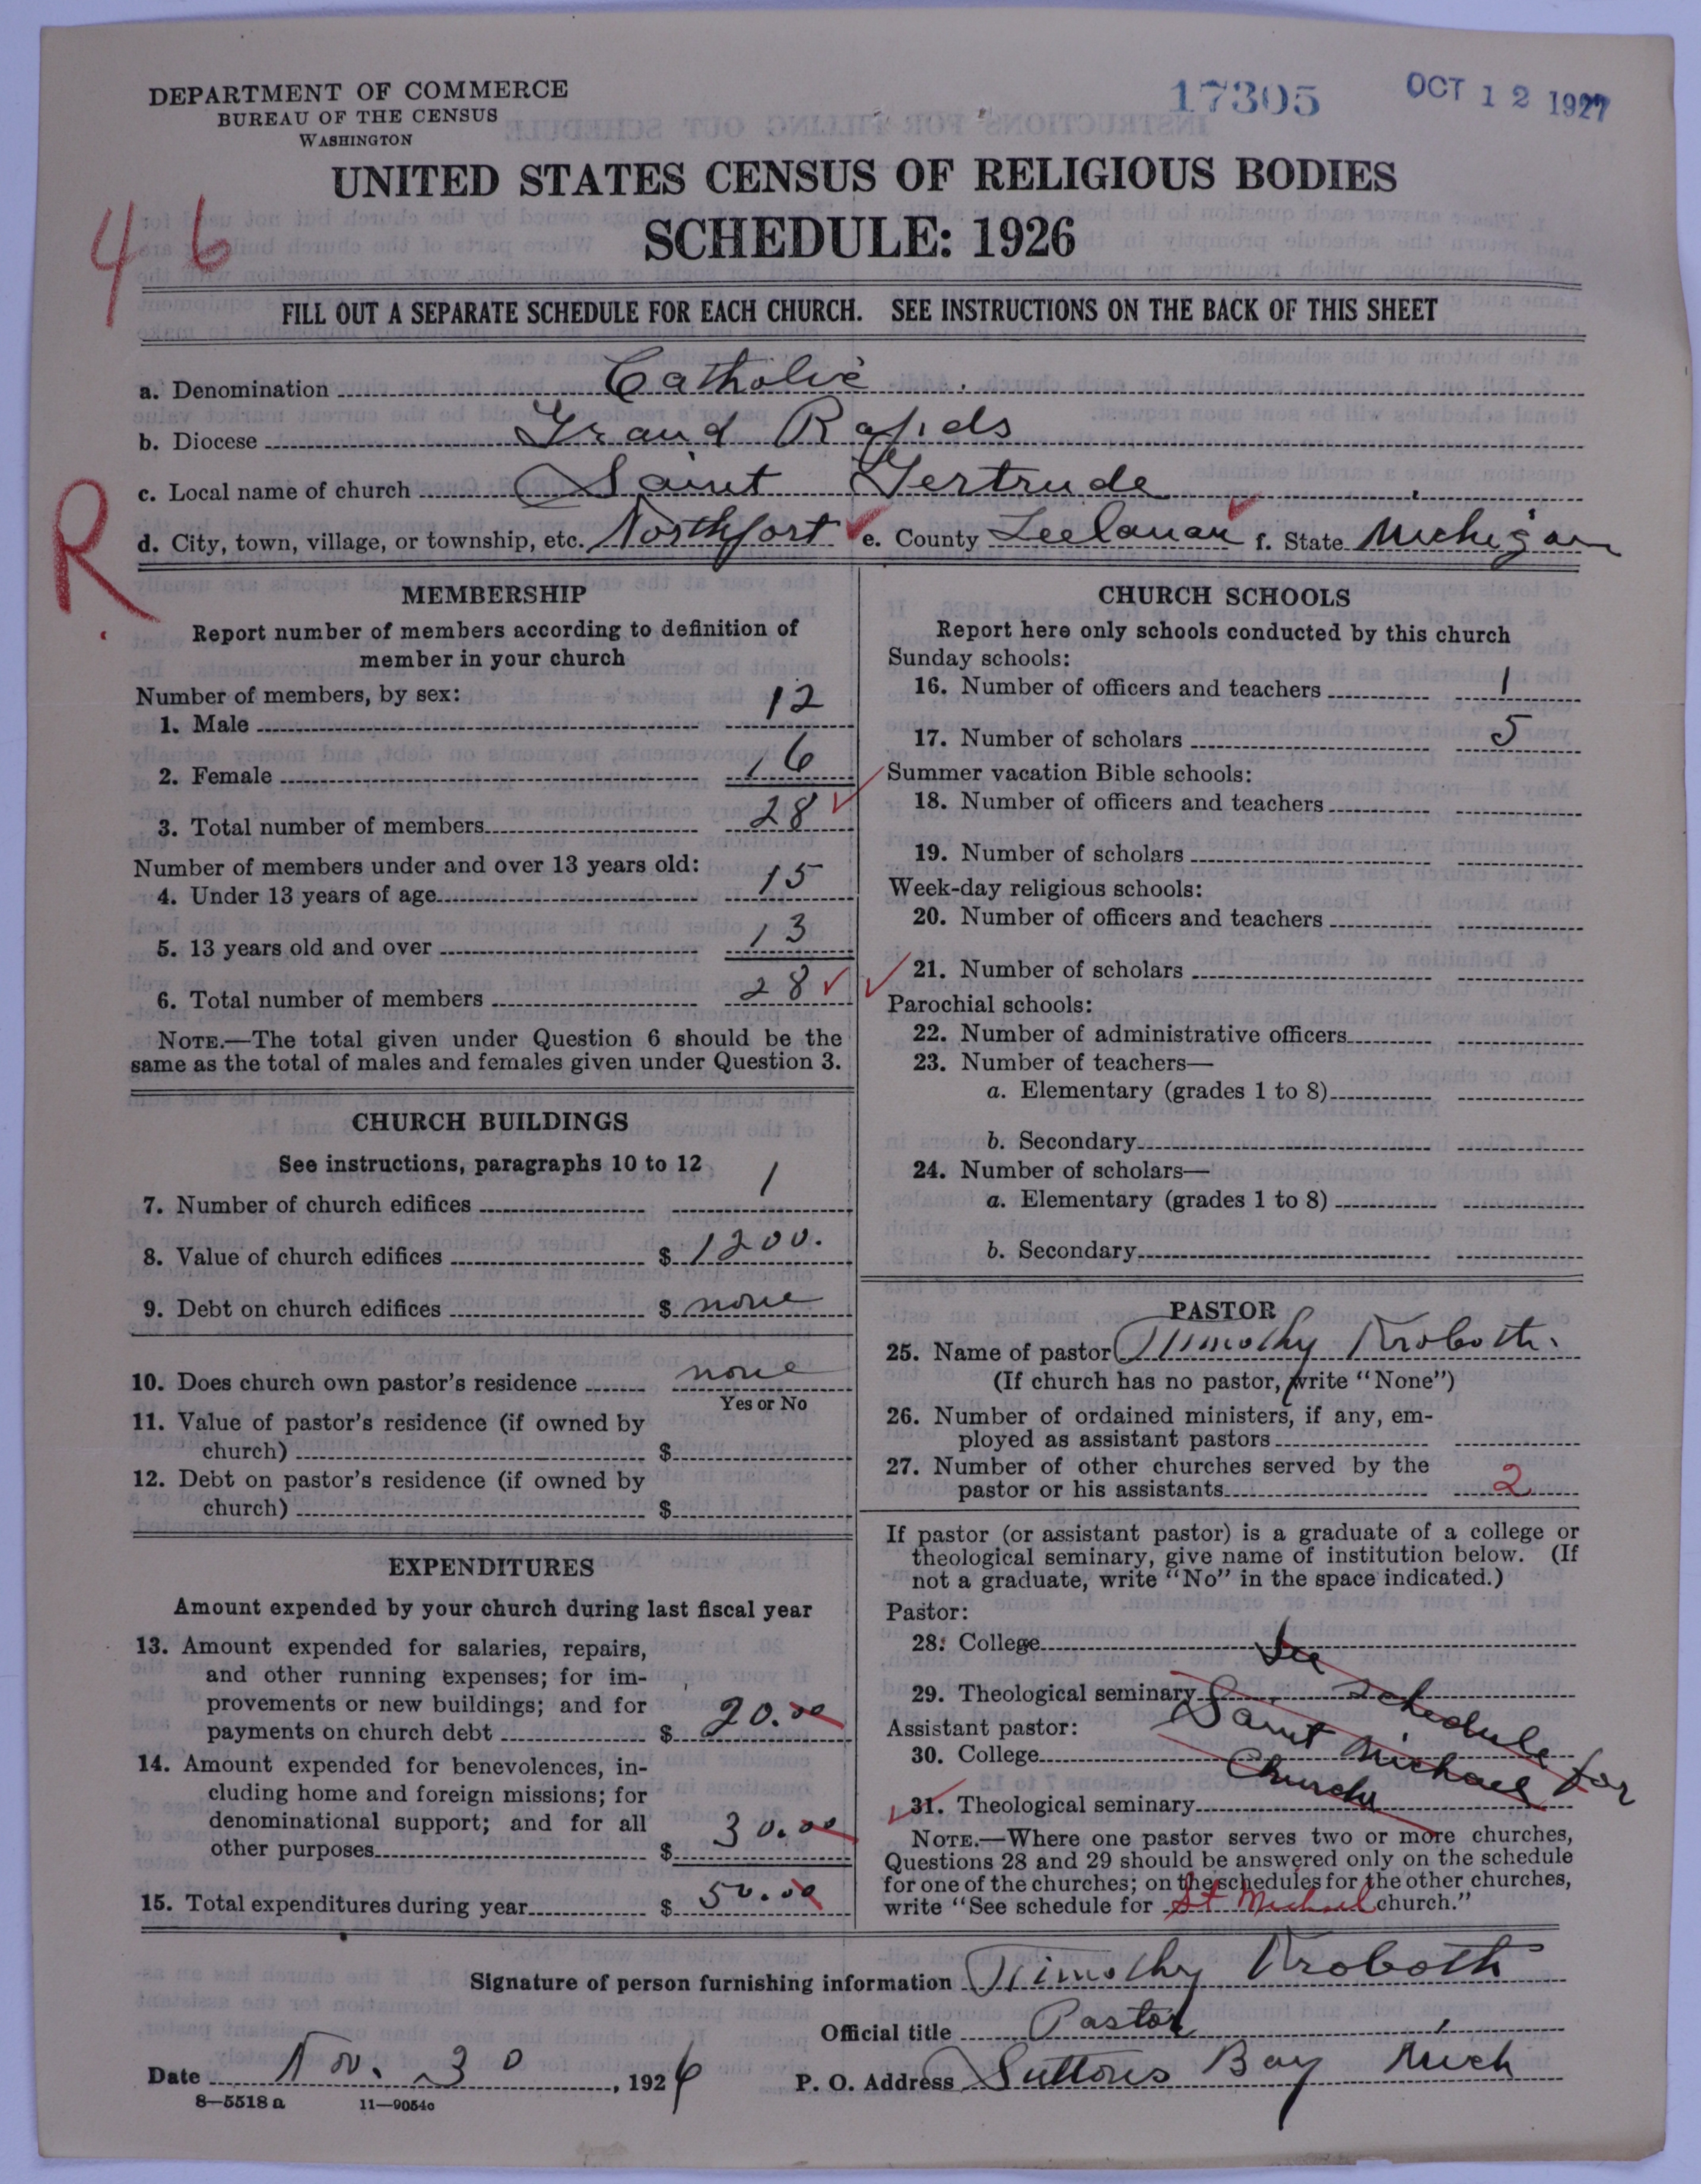 DEPARTMENT OF COMMERCE
BUREAU OF THE CENSUS
WASHINGTON
17305
OCT 12 1927
UNITED STATES CENSUS OF RELIGIOUS BODIES
SCHEDULE: 1926
46
FILL OUT A SEPARATE SCHEDULE FOR EACH CHURCH. SEE INSTRUCTIONS ON THE BACK OF THIS SHEET
a. Denomination Catholic
b. Diocese Grand Rapids
c. Local name of church Saint Gertrude
R
d. City, town, village, or township, etc. Northport e. County Leelanau f. State Michigan
MEMBERSHIP
Report number of members according to definition of
member in your church
Number of members, by sex:
1. Male 12
2. Female 16
3. Total number of members 28
Number of members under and over 13 years old:
4. Under 13 years of age 15
5. 13 years old and over 13
6. Total number of members 28
NOTE.—The total given under Question 6 should be the
same as the total of males and females given under Question 3.
CHURCH BUILDINGS
See instructions, paragraphs 10 to 12
7. Number of church edifices 1
8. Value of church edifices $ 1200.
9. Debt on church edifices $ none
10. Does church own pastor's residence none
Yes or No
11. Value of pastor's residence (if owned by
church) $
12. Debt on pastor's residence (if owned by
church) $
EXPENDITURES
Amount expended by your church during last fiscal year
13. Amount expended for salaries, repairs,
and other running expenses; for im-
provements or new buildings; and for
payments on church debt $ 20.00
14. Amount expended for benevolences, in-
cluding home and foreign missions; for
denominational support; and for all
other purposes $ 30.00
15. Total expenditures during year $ 50.00
CHURCH SCHOOLS
Report here only schools conducted by this church
Sunday schools:
16. Number of officers and teachers 1
17. Number of scholars 5
Summer vacation Bible schools:
18. Number of officers and teachers
19. Number of scholars
Week-day religious schools:
20. Number of officers and teachers
21. Number of scholars
Parochial schools:
22. Number of administrative officers
23. Number of teachers—
a. Elementary (grades 1 to 8)
b. Secondary
24. Number of scholars—
a. Elementary (grades 1 to 8)
b. Secondary
PASTOR
25. Name of pastor Timothy Kroboth.
(If church has no pastor, write "None")
26. Number of ordained ministers, if any, em-
ployed as assistant pastors
27. Number of other churches served by the
pastor or his assistants 2
If pastor (or assistant pastor) is a graduate of a college or
theological seminary, give name of institution below. (If
not a graduate, write "No" in the space indicated.)
Pastor:
28. College
29. Theological seminary
Assistant pastor:
30. College
31. Theological seminary
See schedule for
Saint Michael
Church
NOTE.—Where one pastor serves two or more churches,
Questions 28 and 29 should be answered only on the schedule
for one of the churches; on the schedules for the other churches,
write "See schedule for St Michael church."
Signature of person furnishing information Timothy Kroboth
Official title Pastor
Date Nov. 30, 1926 P. O. Address Suttons Bay Mich
8—5518 a 11—9054c